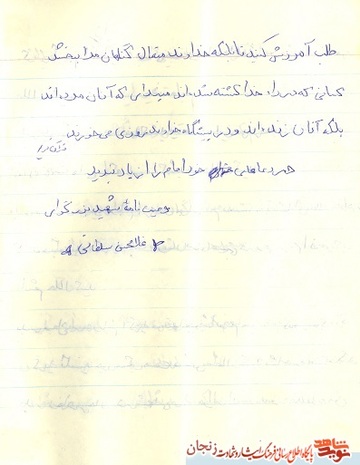 طلب آمورزش کنید تا اینکه خداوند متعال گناهان مرا ببخشد
کسانی که در راه خدا کشته شده‌اند میندارای که آنان مرده‌اند
بلکه آنان زنده‌اند و در پیشگاه خداوند روزی می‌خورند
قرآن کریم
در دعاهای خود امام را از یاد نبرید
وصیت نامهٔ شهید بزرگوار
غلامحسن سلطانی
پایگاه اطلاع رسانی فرهنگ ایثار و شهادت زنجان
نوید شاهد